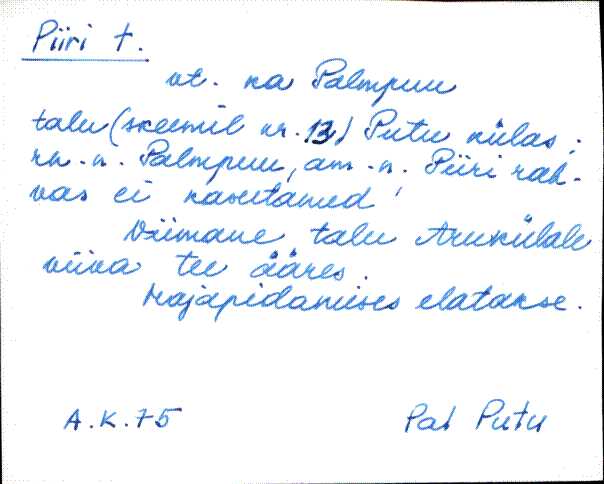 Piiri t.
vt. ka Palmpuu
talu (skeemil nr. 13) Putu külas;
rn.n. Palmpuu, am.n. Piiri rah-
vas ei kasutanud
Viimane talu Arukülale
viiva tee ääres.
Majapidamises elatakse.
A.K.75 Pal Putu